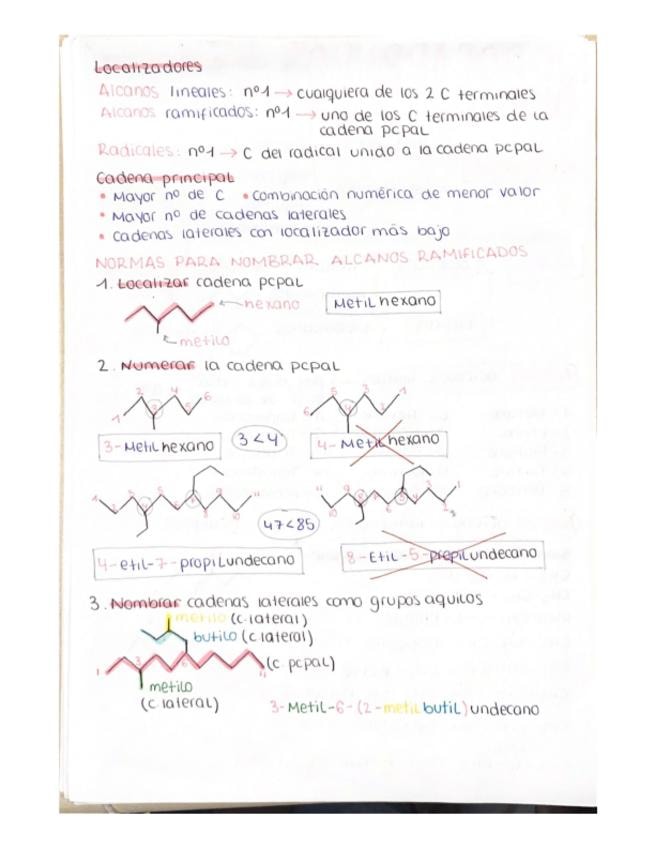 Localizadores
Alcanos lineales: nº1 → cualquiera de los 2 C terminales
Alcanos ramificados: nº1 → uno de los C terminales de la
cadena pcpal
Radicales: nº1 → C del radical unido a la cadena pcpal
Cadena principal
• Mayor nº de C • Combinación numérica de menor valor
• Mayor nº de cadenas laterales
• Cadenas laterales con localizador más bajo
NORMAS PARA NOMBRAR ALCANOS RAMIFICADOS
1. Localizar cadena pcpal
hexano
Metil hexano
metilo
2. Numerar la cadena pcpal
1 2 3 4 5 6
6 5 4 3 2 1
3-Metilhexano
3 < 4
4-Metilhexano
47<85
4-etil-7-propilundecano
8-Etil-5-propilundecano
3. Nombrar cadenas laterales como grupos aquilos
metilo (c.lateral)
butilo (c.lateral)
1 3 6 11 (c. pcpal)
metilo
(c lateral)
3-Metil-6-(2-metilbutil)undecano